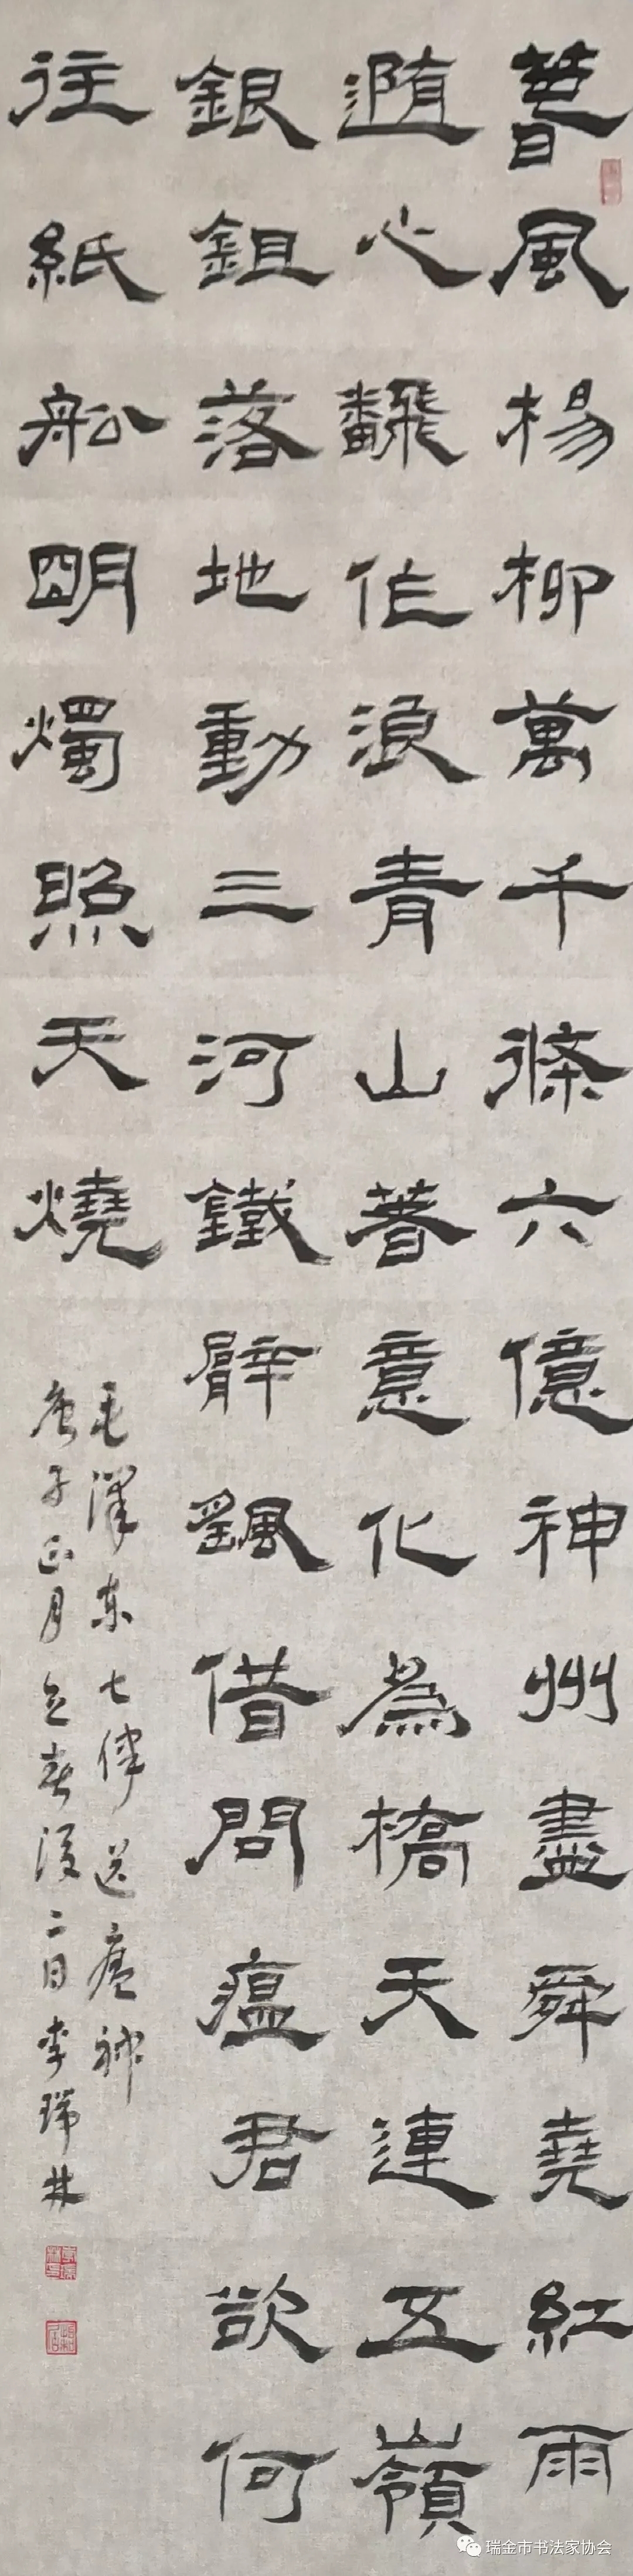 春風楊柳萬千條六億神州盡舜堯紅雨
遀心飜作浪青山著意化為橋天連五嶺
銀鉏落地動三河鐵臂颻借問瘟君欲何
往紙舩明燭照天燒
毛澤东七律送瘟神
庚子正月立春後二日李瑞林
瑞金市书法家协会